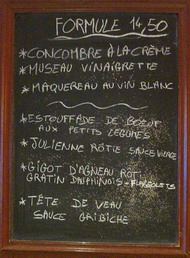 FORMULE 14,50
*CONCOMBRE A LA CRÈME
*MUSEAU VINAIGRETTE
*MAQUEREAU AU VIN BLANC
*ESTOUFFADE DE BOEUF
AUX PETITS LEGUMES
*JULIENNE RÔTIE SAUCE VIERGE
*GIGOT D'AGNEAU ROTI
GRATIN DAUPHINOIS - FLAGEOLETS
*TÊTE DE VEAU
SAUCE GRIBICHE